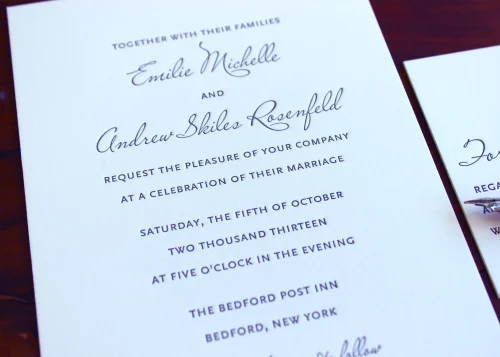 TOGETHER WITH THEIR FAMILIES
Emilie Michelle
AND
Andrew Skiles Rosenfeld
REQUEST THE PLEASURE OF YOUR COMPANY
AT A CELEBRATION OF THEIR MARRIAGE
SATURDAY, THE FIFTH OF OCTOBER
TWO THOUSAND THIRTEEN
AT FIVE O'CLOCK IN THE EVENING
THE BEDFORD POST INN
BEDFORD, NEW YORK
follow